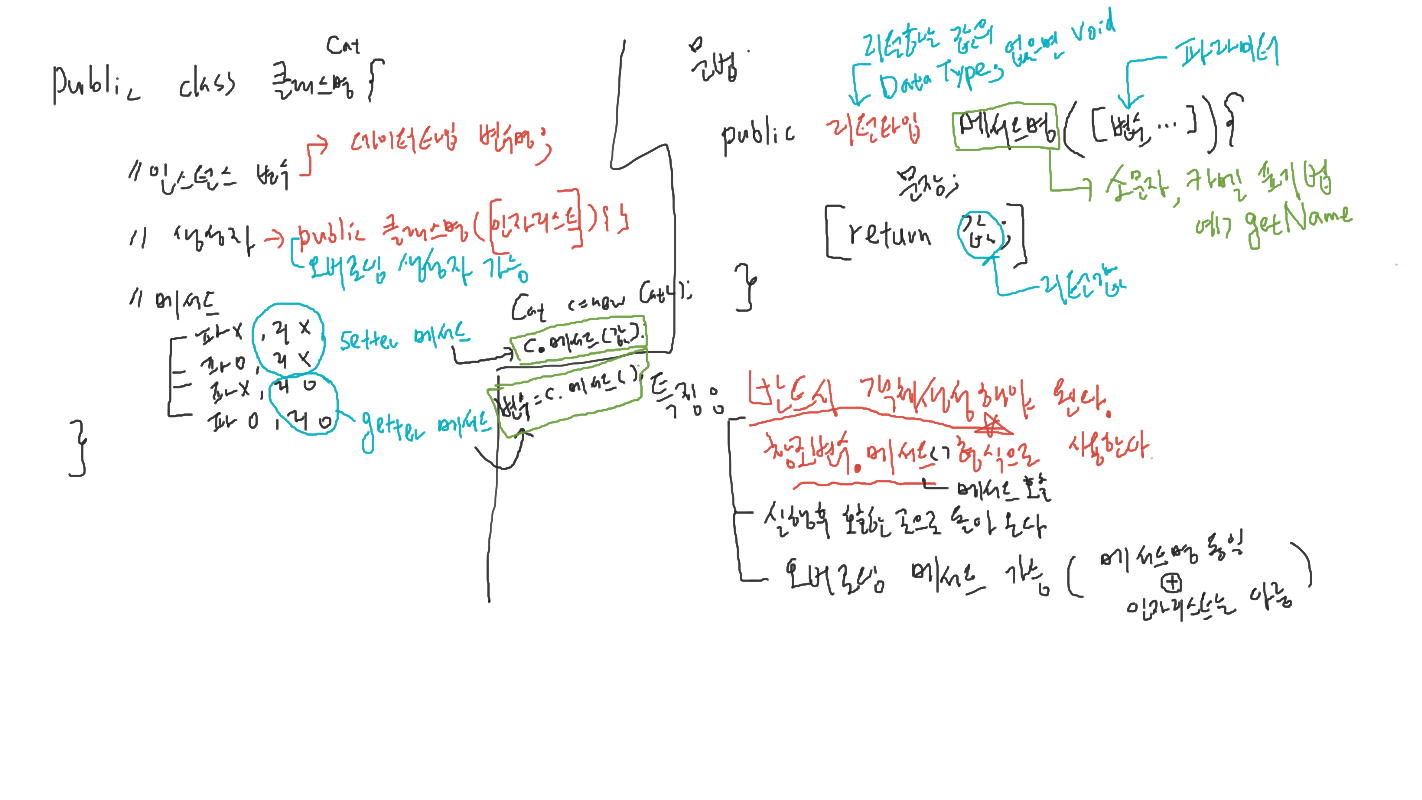 Cat
public class 클래스명 {
// 인스턴스 변수 → 데이터타입 변수명;
// 생성자 → public 클래스명([인자리스트]) { }
오버로딩 생성자 가능
// 메서드
파 x, 리 x
파 o, 리 x
setter 메서드
파 x, 리 o
파 o, 리 o
getter 메서드
}
Cat c = new Cat();
c.메서드(값).
변수 = c.메서드();
문법
리턴하는 값의
Data Type, 없으면 void
파라미터
public 리턴타입 메서드명([변수, ...]) {
문장;
소문자, 카멜 표기법
예) getName
[return 값;]
리턴값
}
특징
반드시 객체생성해야 된다.
참조변수.메서드() 형식으로 사용한다.
메서드 호출
실행후 호출한 곳으로 돌아 온다
오버로딩 메서드 가능 (메서드명 동일
+
인자리스트는 다름)